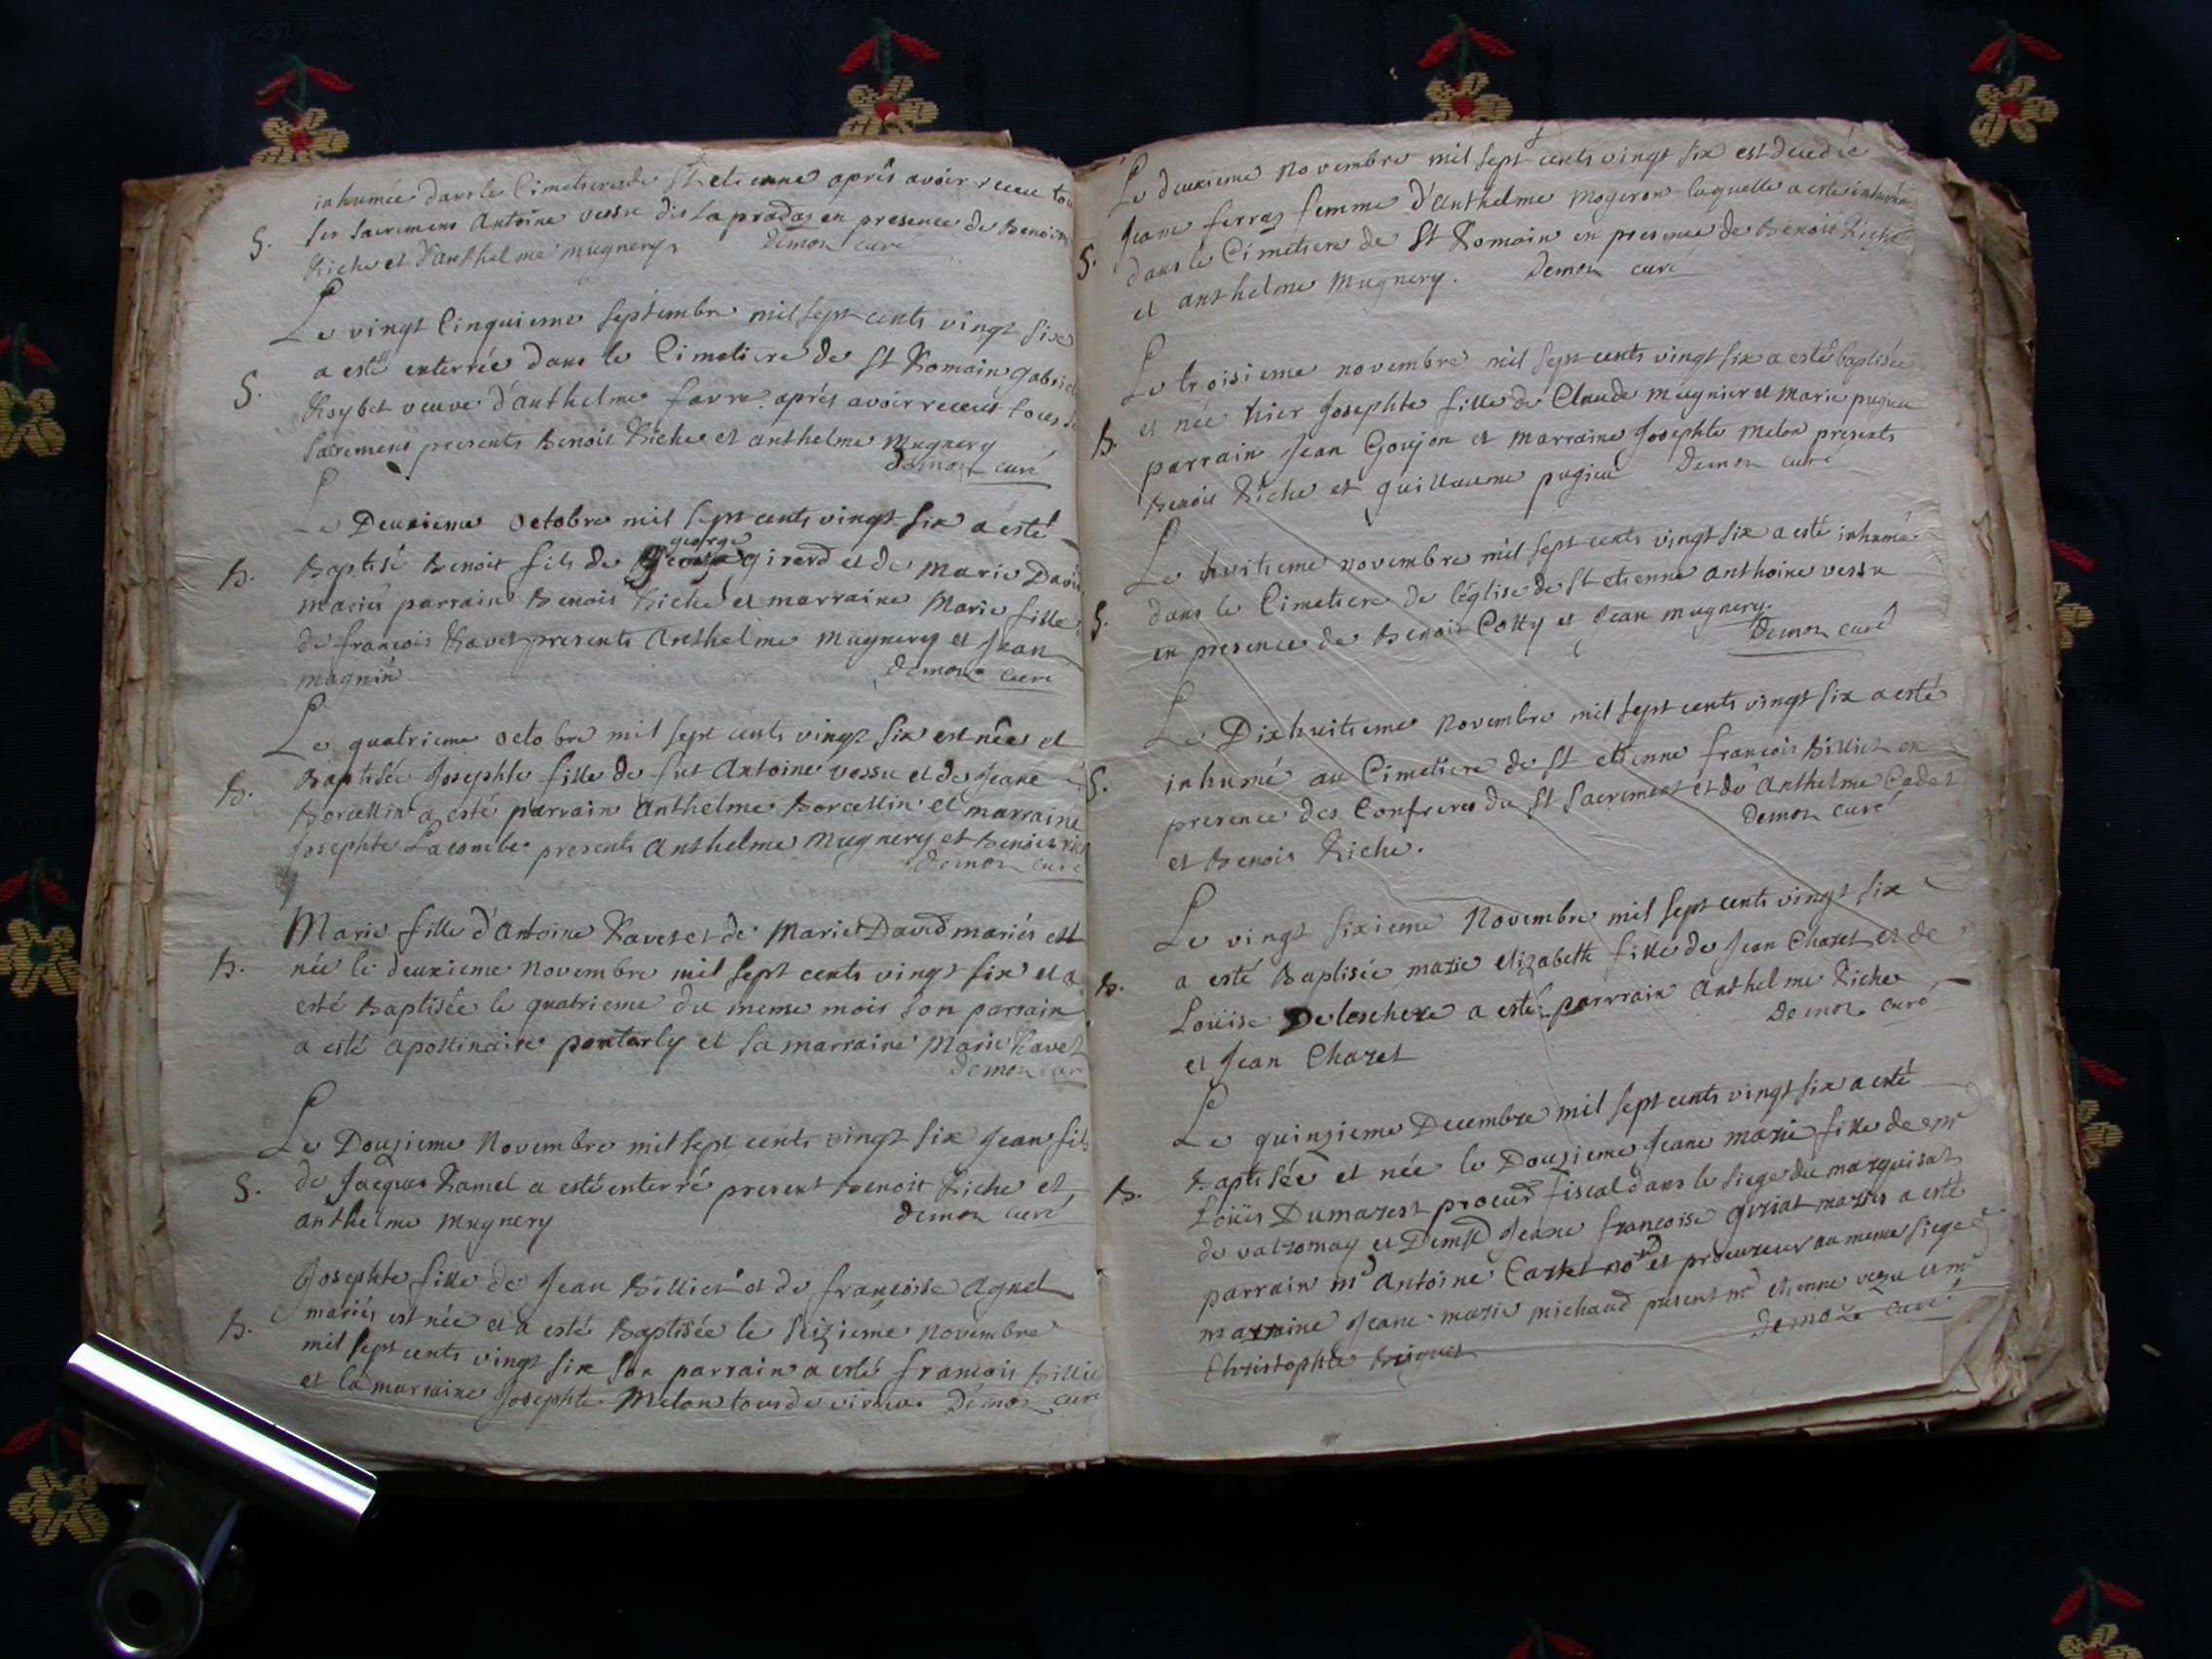 inhumée dans le Cimetiere de St etienne aprés avoir receu
S. ses Sacremens Antoine vessu dit La pradaz en presence de Benoit
Riche et d'anthelme mugnery Demoz curé
Le vingt Cinquieme Septembre mil sept cents vingt Six
a esté enterrée dans le Cimetiere de St Romain
S. Roybet veuve d'anthelme favre aprés avoir receus tous
Sacremens presents Benoit Riche et anthelme Mugnery
Demoz curé
Le Deuxieme octobre mil sept cents vingt six a esté
george
B. Baptisé Benoit fils de girard et de Marie David
mariés parrain Benoit Riche et marraine Marie fille
de françois Ravet presents Anthelme Mugnery et Jean
magnin Demoz curé
Le quatrieme octobre mil sept cents vingt six est née et
B. Baptisée Josephte fille de fut Antoine vessu et de Jeane
Borcellin a esté parrain Anthelme Borcellin et marraine
Josephte Lacombe presents Anthelme Mugnery et Benoit
Demoz curé
Marie fille d'Antoine Ravet et de Marie David mariés est
B. née le deuxieme Novembre mil sept cents vingt six et a
esté Baptisée le quatrieme du meme mois son parrain
a esté apollinaire ponterly et sa marraine Marie Ravet
Demoz cur
Le Douzieme Novembre mil sept cents vingt six Jean fils
S. de Jacques Ramel a esté enterré present Benoit Riche et
anthelme Mugnery Demoz curé
Josephte fille de Jean Billiet et de françoise Agnel
B. mariés est née et a esté Baptisée le Seizieme Novembre
mil sept cents vingt six son parrain a esté francois
et la marraine Josephte Melon tous de virieu. Demoz curé
Le deuxieme Novembre mil sept cents vingt six est decedée
Jeane ferraz femme d'Anthelme Mogeron laquelle a este inhumée
S. dans le Cimetiere de St Romain en presence de Benoit Riche
et anthelme Mugnery. Demoz curé
Le troisieme novembre mil sept cents vingt six a esté baptisée
et née hier Josephte fille de Claude mugnier et Marie pugieu
B. parrain Jean Goujon et marraine Josephte Melon presents
Benoit Riche et guillaume pugieu Demoz curé
Le huitieme novembre mil sept cents vingt six a esté inhumé
S. dans le Cimetiere de l'église de St etienne anthoine vessu
en presence de Benoit Cotty et Jean mugnery.
Demoz curé
Le Dixhuitieme Novembre mil sept cents vingt six a esté
S. inhumé au Cimetiere de St etienne françois Billiet en
presence des Confreres du St Sacrement et de Anthelme Cadet
et Benoit Riche. Demoz curé
Le vingt sixieme Novembre mil sept cents vingt six
B. a esté Baptisée marie elizabeth fille de Jean Chazet et de
Loüise Deleschere a esté parrrain Anthelme Riche
et Jean Chazet Demoz curé
Le quinzieme Decembre mil sept cents vingt six a esté
B. Baptisée et née le Douzieme Jeane marie fille de mr
Loüis Dumarest procur fiscal dans le siege du marquisat
de valromay et Demlle Jeane francoise mariés a esté
parrain mr Antoine no et procureur au meme siege
marraine Jeane marie michaud present mr etienne vezu et mr
Christophte Demoz curé